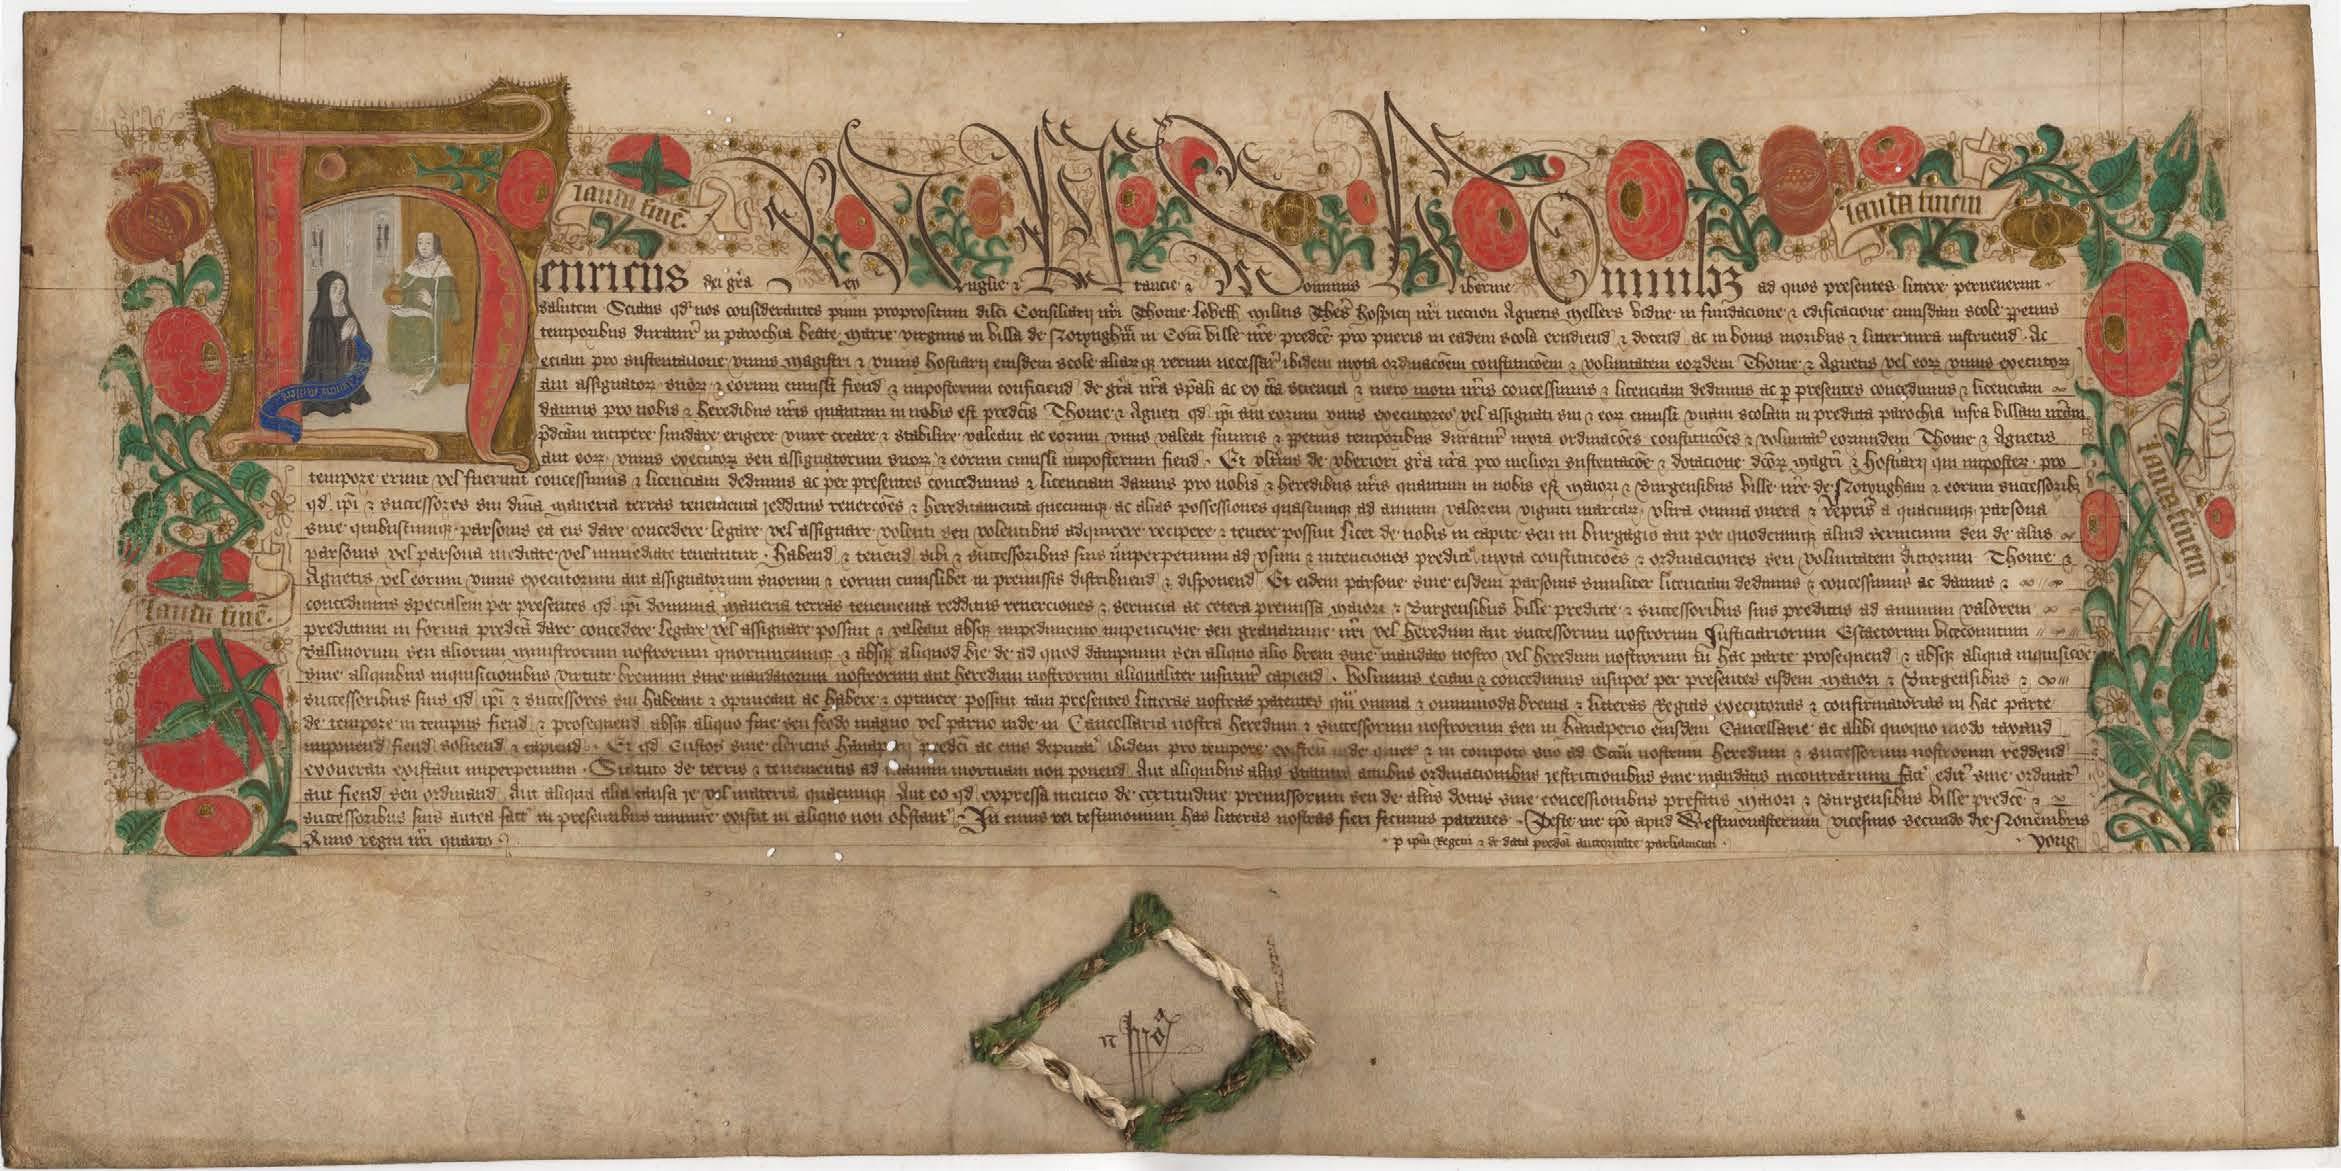 Henricus dei gr̄a Rex Anglie ⁊ Francie ⁊ Dominus Hibernie Omnibȝ ad quos presentes littere pervenerint
salutem Sciatis qd nos considerantes pium propositum dilcti Consiliarij nr̄i Thome Lovell militis Thes hospicij nr̄i necnon Agnetis Mellers vidue in fundacione ⁊ edificacione cuiusdam scole ꝑpetuis
temporibus duratur in parochia beate Marie virginis in villa de Notyngham in Com ville nr̄e predce pro pueris in eadem scola erudiend ⁊ docend ac in bonis moribus ⁊ litteratura instruend Ac
eciam pro sustentacione unius magistri ⁊ unius hostiarij eiusdem scole aliarꝫ qꝫ rerum necessar ibidem iuxta ordinacoem constitucoem ⁊ voluntatem eordem Thome ⁊ Agnetis vel eorꝫ unius executorꝫ
aut assignatorꝫ suorꝫ ⁊ eorum cuiusli fiend ⁊ imposterum conficiend de gr̄a nr̄a sp̄ali ac ex c̄ta sciencia ⁊ mero motu nr̄is concessimus ⁊ licenciam dedimus ac ꝑ presentes concedimus ⁊ licenciam
damus pro nobis ⁊ heredibus nr̄is quantum in nobis est predc̄is Thome ⁊ Agneti qd ip̄i aut eorum unus executores vel assignati sui ⁊ eorꝫ cuiusli unam scolam in predicta parochia infra villam nr̄am
p̄dcam incipere fundare erigere unire creare ⁊ stabilire valeant ac eorum unus valeat futuris ⁊ ꝑpetuis temporibus duratur iuxta ordinacōes constitucōes ⁊ voluntat eorundem Thome ⁊ Agnetis
aut eorꝫ unius executorꝫ seu assignatorum suorꝫ ⁊ eorum cuiusli imposterum fiend Et ulterius de uberiori gr̄a nr̄a pro meliori sustentacōe ⁊ dotacione dc̄orꝫ magr̄i ⁊ hostiarij qui imposterꝫ pro
tempore erunt vel fuerint concessimus ⁊ licenciam dedimus ac per presentes concedimus ⁊ licenciam damus pro nobis ⁊ heredibus nr̄is quantum in nobis est Maiori ⁊ Burgensibus ville nr̄e de Notyngham ⁊ eorum successoribꝫ
qd ip̄i ⁊ successores sui dn̄ia maneria terras tenementa redditus reverc̄oes ⁊ hereditamenta quecumqꝫ ac alias possessiones quascumqꝫ ad annum valorem viginti marcarꝫ ultra omnia onera ⁊ repris a quacumqꝫ parsona
sive quibuscumqꝫ parsonis ea eis dare concedere legare vel assignare volenti seu volentibus adquirere recipere ⁊ tenere possint licet de nobis in capite seu in burgagio aut per quodcumqꝫ aliud servicium seu de aliis
parsonis vel parsona mediate vel immediate teneantur Habend ⁊ tenend sibi ⁊ successoribus suis imperpetuum ad usum ⁊ intenciones predict iuxta constitucōes ⁊ ordinaciones seu voluntatem dictorum Thome ⁊
Agnetis vel eorum unius executorum aut assignatorum suorum ⁊ eorum cuiuslibet in premissis distribuend ⁊ disponend Et eidem parsone sive eisdem parsonis similiter licenciam dedimus ⁊ concessimus ac damus ⁊
concedimus specialem per presentes qd ip̄i dominia maneria terras tenementa redditus reverciones ⁊ servicia ac cetera premissa Maiori ⁊ Burgensibus ville predicte ⁊ successoribus suis predictis ad annuum valorem
predictum in forma predcā dare concedere legare vel assignare possint ⁊ valeant absqꝫ impedimento impeticione seu gravamine nr̄i vel heredum aut successorum nostrorum Justiciariorum Escaetorum vicecomitum
Ballivorum seu aliorum ministrorum nostrorum quorumcumqꝫ ⁊ absqꝫ aliquod bre de ad quod dampnum seu aliquo alio brevi sive mandato nostro vel heredum nostrorum in hac parte prosequend ⁊ absqꝫ aliqua inquisicōe
sive aliquibus inquisicionibus virtute brevium sive mandatorum nostrorum aut heredum nostrorum aliqualiter inde capiend Volumus eciam ⁊ concedimus insuper per presentes eisdem Maiori ⁊ Burgensibus ⁊
successoribus suis qd ip̄i ⁊ successores sui habeant ⁊ optineant ac habere ⁊ optinere possint tam presentes litteras nostras patentes qm omnia ⁊ omnimoda brevia ⁊ litteras Regias executorias ⁊ confirmatorias in hac parte
de tempore in tempus fiend ⁊ prosequend absqꝫ aliquo fine seu feodo magno vel parvo inde in Cancellaria nostra heredum ⁊ successorum nostrorum seu in hanaperio eiusdem Cancellarie ac alibi quoquo modo taxand
imponend fiend solvend ⁊ capiend Et qd Custos sive clericus hanaperij predc̄i ac eius deputat ibidem pro tempore existen inde quiet ⁊ in compoto suo ad Sc̄cm nostrum heredum ⁊ successorum nostrorum reddend
exonerati existant imperpetuum Statuto de terris ⁊ tenementis ad manum mortuam non ponend Aut aliquibus aliis statutis actibus ordinacionibus restrictionibus sive mandatis incontrarium fact edit sive ordinat
aut fiend seu ordinand Aut aliqua alia causa re vel materia quacumqꝫ Aut eo qd expressa mencio de certitudine premissorum seu de aliis donis sive concessionibus prefatis Maiori ⁊ Burgensibus ville predce ⁊
successoribus suis antea fact in presentibus minime existit in aliquo non obstant In cuius rei testimonium has litteras nostras fieri fecimus patentes Teste me ip̄o apud Westmonasterium vicesimo secundo die Novembris
Anno regni nr̄i quarto
p ip̄m Regem ⁊ de data predc̄a auctoritate parliamenti
yong